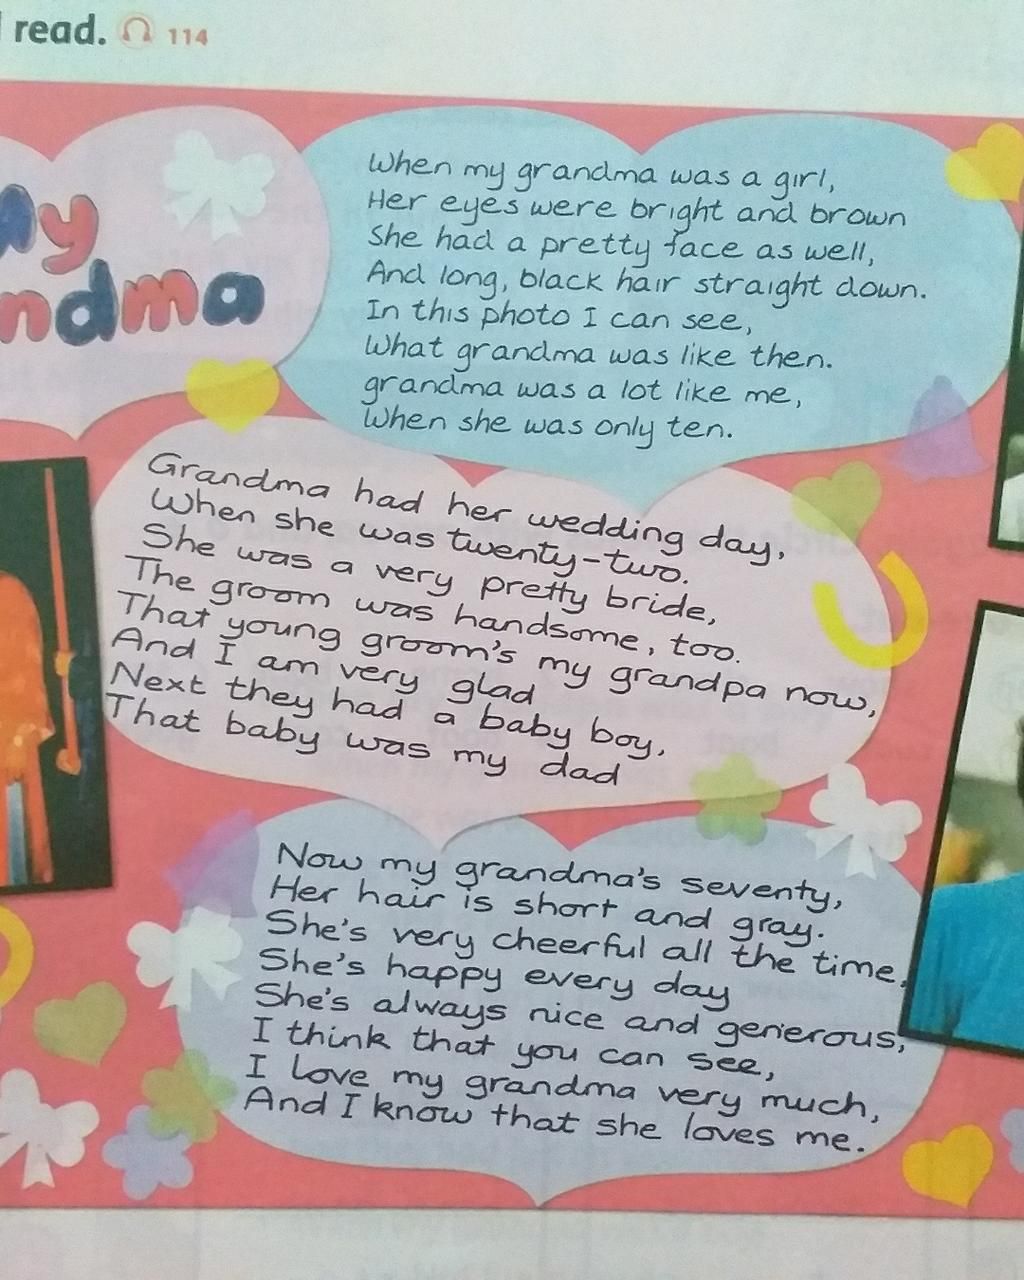 read. 114
My
ndma
When my grandma was a girl,
Her eyes were bright and brown
She had a pretty face as well,
And long, black hair straight down.
In this photo I can see,
What grandma was like then.
grandma was a lot like me,
When she was only ten.
Grandma had her wedding day,
When she was twenty-two.
She was a very pretty bride,
The groom was handsome, too.
That young groom's my grandpa now,
And I am very glad
Next they had a baby boy,
That baby was my dad
Now my grandma's seventy,
Her hair is short and gray.
She's very cheerful all the time,
She's happy every day
She's always nice and generous,
I think that you can see,
I love my grandma very much,
And I know that she loves me.